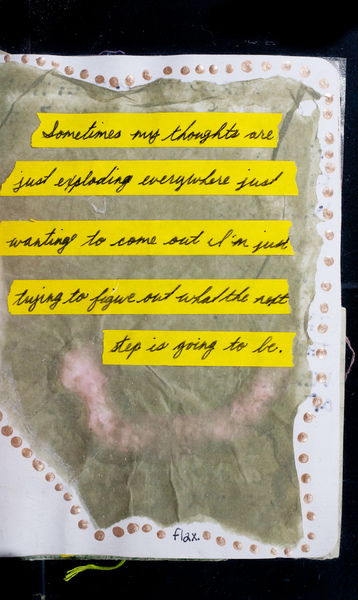 Sometimes my thoughts are
just exploding everywhere just
wanting to come out I'm just
trying to figure out what the next
step is going to be.
flax.